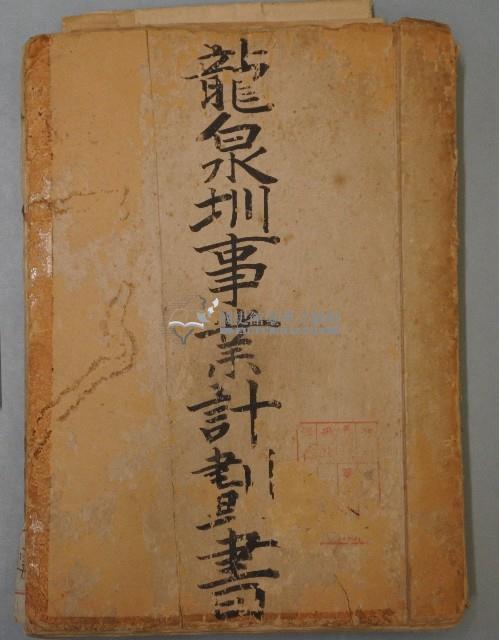 龍泉圳事業計劃書